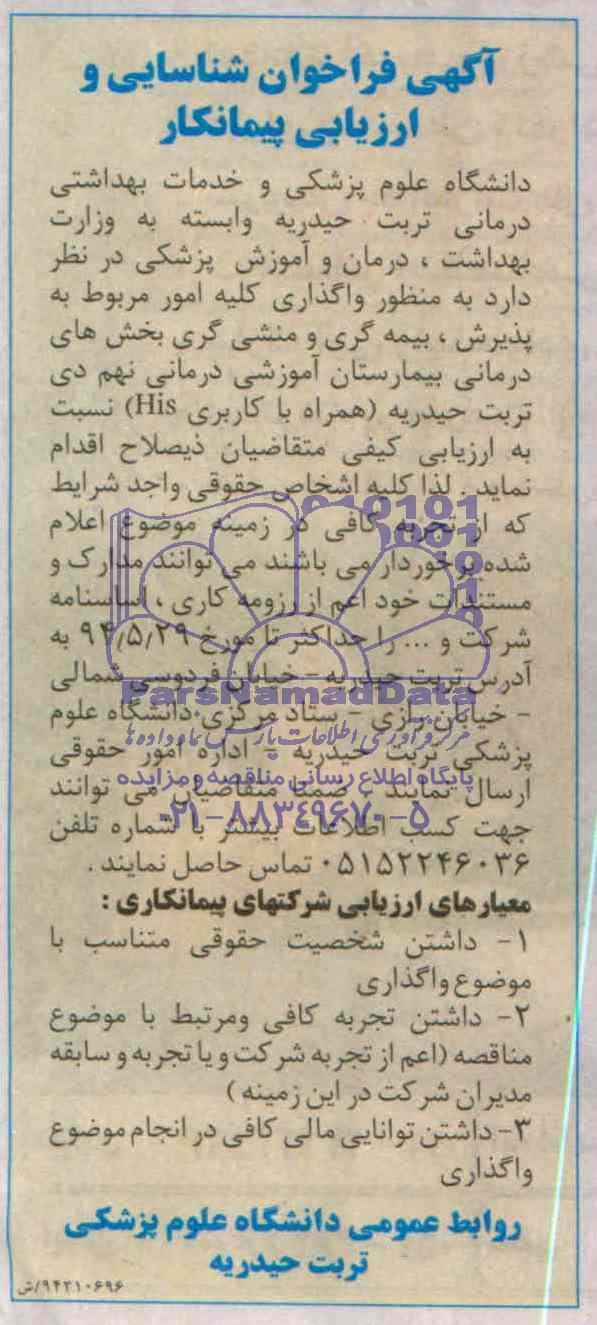 آگهی فراخوان شناسایی و
ارزیابی پیمانکار
دانشگاه علوم پزشکی و خدمات بهداشتی
درمانی تربت حیدریه وابسته به وزارت
بهداشت ، درمان و آموزش پزشکی در نظر
دارد به منظور واگذاری کلیه امور مربوط به
پذیرش ، بیمه گری و منشی گری بخش های
درمانی بیمارستان آموزشی درمانی نهم دی
تربت حیدریه (همراه با کاربری His) نسبت
به ارزیابی کیفی متقاضیان ذیصلاح اقدام
نماید . لذا کلیه اشخاص حقوقی واجد شرایط
که از تجربه کافی در زمینه موضوع اعلام
شده برخوردار می باشند می توانند مدارک و
مستندات خود اعم از رزومه کاری ، اساسنامه
شرکت و ... را حداکثر تا مورخ ۹۴/۵/۲۹ به
آدرس تربت حیدریه - خیابان فردوسی شمالی
ParsNamadData
- خیابان رازی - ستاد مرکزی دانشگاه علوم
مرکز فرآوری اطلاعات پارس نماد داده ها
پزشکی تربت حیدریه - اداره امور حقوقی
پایگاه اطلاع رسانی مناقصه و مزایده
ارسال نمایند . ضمنا متقاضیان می توانند
۰۲۱-۸۸۳۴۹۶۷۰-۵
جهت کسب اطلاعات بیشتر با شماره تلفن
۰۵۱۵۲۲۴۶۰۳۶ تماس حاصل نمایند .
معیارهای ارزیابی شرکتهای پیمانکاری :
۱- داشتن شخصیت حقوقی متناسب با
موضوع واگذاری
۲- داشتن تجربه کافی ومرتبط با موضوع
مناقصه (اعم از تجربه شرکت و یا تجربه و سابقه
مدیران شرکت در این زمینه )
۳- داشتن توانایی مالی کافی در انجام موضوع
واگذاری
روابط عمومی دانشگاه علوم پزشکی
تربت حیدریه
۹۴۲۱۰۶۹۶/ش